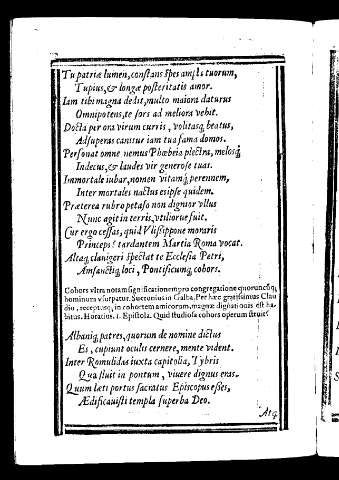 Tu patriæ lumen, constans spes ampla tuorum,
Tu pius, & longæ posteritatis amor.
Iam tibi magna dedit, multo maiora daturus
Omnipotens, te fors ad meliora vehit.
Docta per ora virum curris, volitasq; beatus,
Ad superas canitur iam tua fama domos.
Personat omne nemus Phœbeia plectra, melosq;
Indecus, & laudes vir generose tuas.
Immortale iubar, nomen vitamq; perennem,
Inter mortales nactus es ipse quidem.
Præterea rubro petaso non dignior vllus
Nunc agit in terris, vtilior ue fuit.
Cur ergo cessas, quid Vlissippone moraris
Princeps? tardantem Martia Roma vocat.
Altaq; clanigeri spectat te Ecclesia Petri,
Amsanctiq; loci, Pontificumq; cohors.
Cohors vltra notam significationem pro congregatione quorumcũq;
hominum vsurpatur. Suetonius in Galba. Per hæc gratissimus Clau
dio, receptusq; in cohortem amicorum, magnæ dignationis est ha-
bitus. Horatius. 1. Epistola. Quid studiosa cohors operum struit?
Albaniq; patres, quorum de nomine dictus
Es, cupiunt oculis cernere, mente vident.
Inter Romulidas iuxta capitolia, Tybris
Qua fluit in pontum, viuere dignus eras.
Quum læti portus sacratus Episcopus esses,
Ædificauisti templa superba Deo.
Atq;